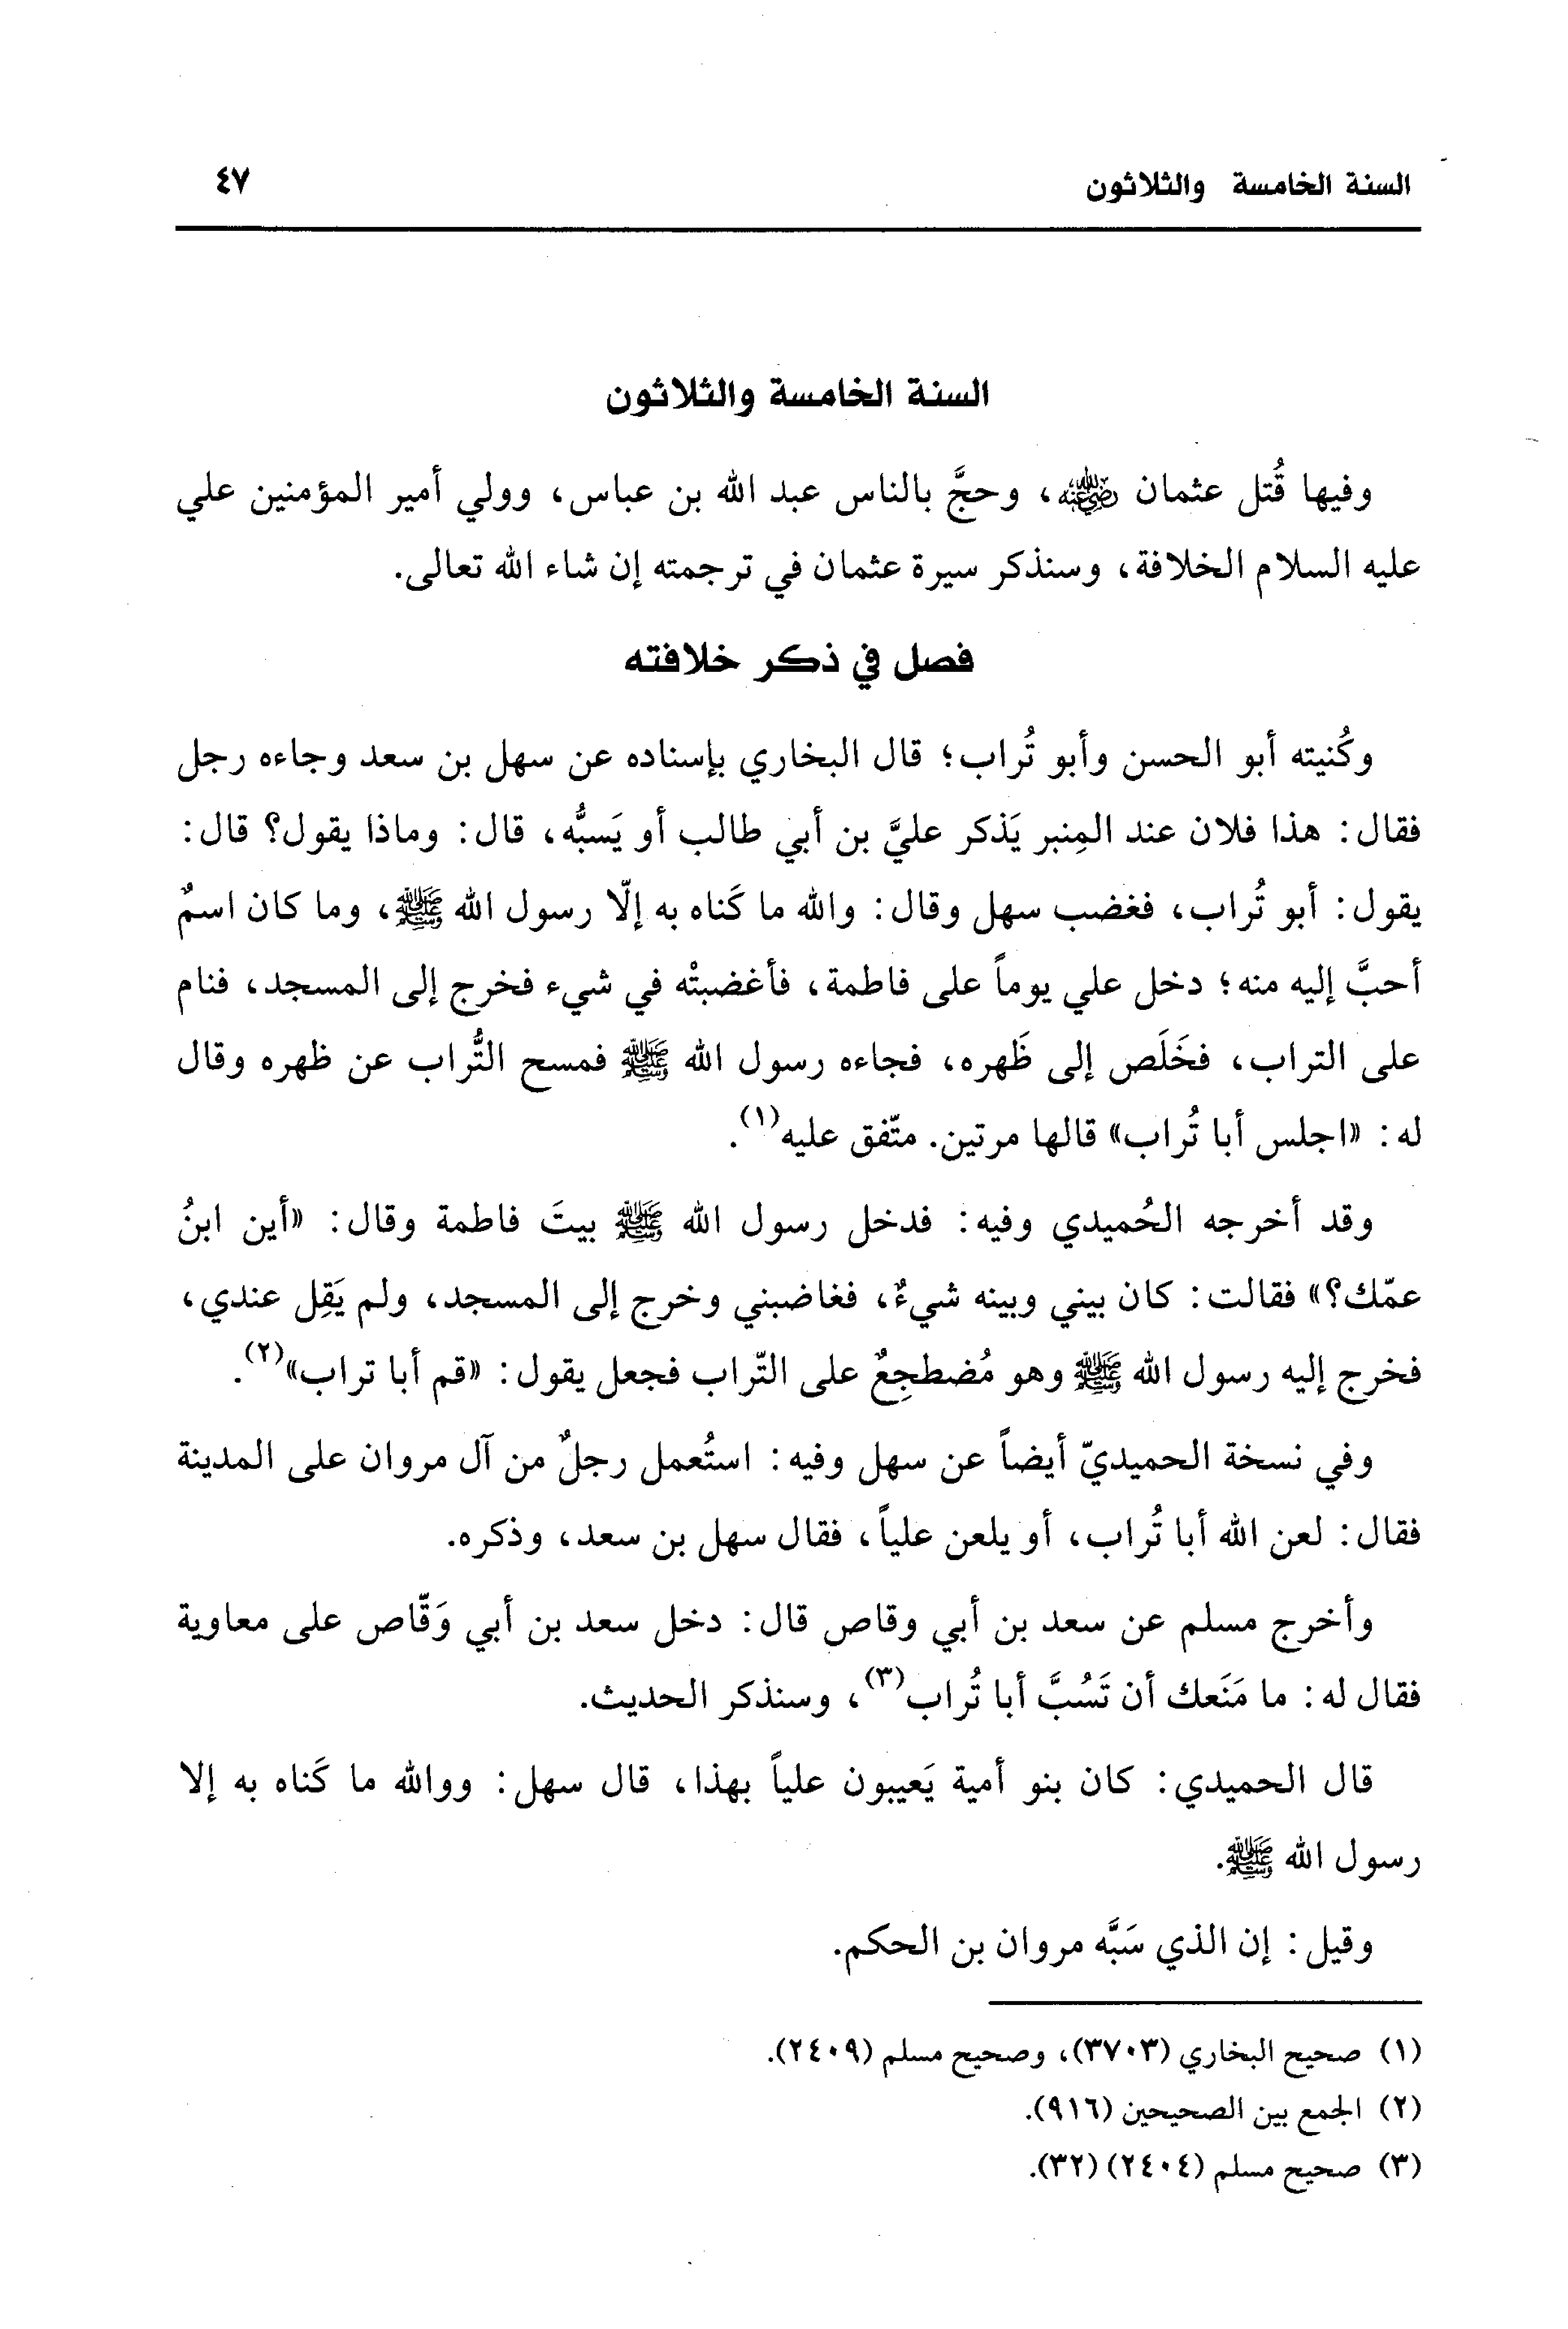 السنة الخامسة والثلاثون
٤٧
السنة الخامسة والثلاثون
وفيها قُتل عثمان رضي الله عنه، وحجَّ بالناس عبد الله بن عباس، وولي أمير المؤمنين علي
عليه السلام الخلافة، وسنذكر سيرة عثمان في ترجمته إن شاء الله تعالى.
فصل في ذكر خلافته
وكُنيته أبو الحسن وأبو تُراب؛ قال البخاري بإسناده عن سهل بن سعد وجاءه رجل
فقال: هذا فلان عند المِنبر يَذكر عليَّ بن أبي طالب أو يَسبُّه، قال: وماذا يقول؟ قال:
يقول: أبو تُراب، فغضب سهل وقال: والله ما كَناه به إلّا رسول الله ﷺ، وما كان اسمٌ
أحبَّ إليه منه؛ دخل علي يوماً على فاطمة، فأغضبتْه في شيء فخرج إلى المسجد، فنام
على التراب، فخَلَص إلى ظَهره، فجاءه رسول الله ﷺ فمسح التُّراب عن ظهره وقال
له: «اجلس أبا تُراب» قالها مرتين. متّفق عليه(١).
وقد أخرجه الحُميدي وفيه: فدخل رسول الله ﷺ بيتَ فاطمة وقال: «أين ابنُ
عمّك؟» فقالت: كان بيني وبينه شيءٌ، فغاضبني وخرج إلى المسجد، ولم يَقِل عندي،
فخرج إليه رسول الله ﷺ وهو مُضطجِعٌ على التّراب فجعل يقول: «قم أبا تراب»(٢).
وفي نسخة الحميديّ أيضاً عن سهل وفيه: استُعمل رجلٌ من آل مروان على المدينة
فقال: لعن الله أبا تُراب، أو يلعن علياً، فقال سهل بن سعد، وذكره.
وأخرج مسلم عن سعد بن أبي وقاص قال: دخل سعد بن أبي وَقّاص على معاوية
فقال له: ما مَنَعك أن تَسُبَّ أبا تُراب(٣)، وسنذكر الحديث.
قال الحميدي: كان بنو أمية يَعيبون علياً بهذا، قال سهل: ووالله ما كَناه به إلا
رسول الله ﷺ.
وقيل: إن الذي سَبَّه مروان بن الحكم.
(١) صحيح البخاري (٣٧٠٣)، وصحيح مسلم (٢٤٠٩).
(٢) الجمع بين الصحيحين (٩١٦).
(٣) صحيح مسلم (٢٤٠٤) (٣٢).